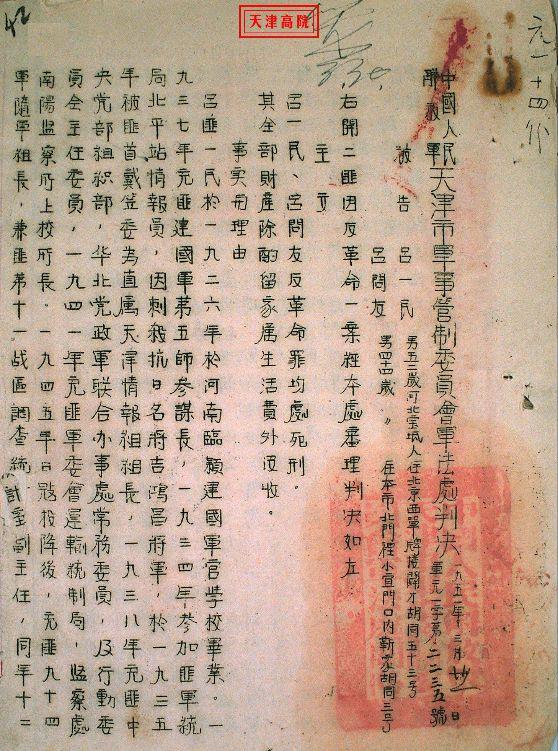 天津高院
42
六一十四行
中國人民解放軍天津市軍事管制委員會軍法處判决 一九五一年三月 日
軍元一字第二二三五號
被告 呂一民 男五二歲河北宝坻人住北京西單辟才胡同五十三号
呂問友 男四十四歲 〃 住本市北門裡小宜門口內靳家胡同三号
右開二匪因反革命一案經本處審理判决如左
主文
呂一民、呂問友反革命罪均處死刑。
其全部財產除酌留家屬生活費外沒收。
事实和理由
呂匪一民於一九二六年於河南臨潁建國軍官学校畢業。一
九三七年充匪建國軍第五師参謀長，一九三四年参加匪軍統
局北平站情報員，因刺殺抗日名將吉鴻昌將軍，於一九三五
年被匪首戴笠委為直属天津情報組組長，一九三八年充匪中
央党部組织部，华北党政軍联合办事處常務委員，及行動委
員会主任委員，一九四一年充匪軍委會運輸統制局，監察處
南陽監察所上校所長。一九四五年日寇投降後，充匪九十四
軍隨軍組長，兼匪第十一战區調查統計室副主任，同年十二